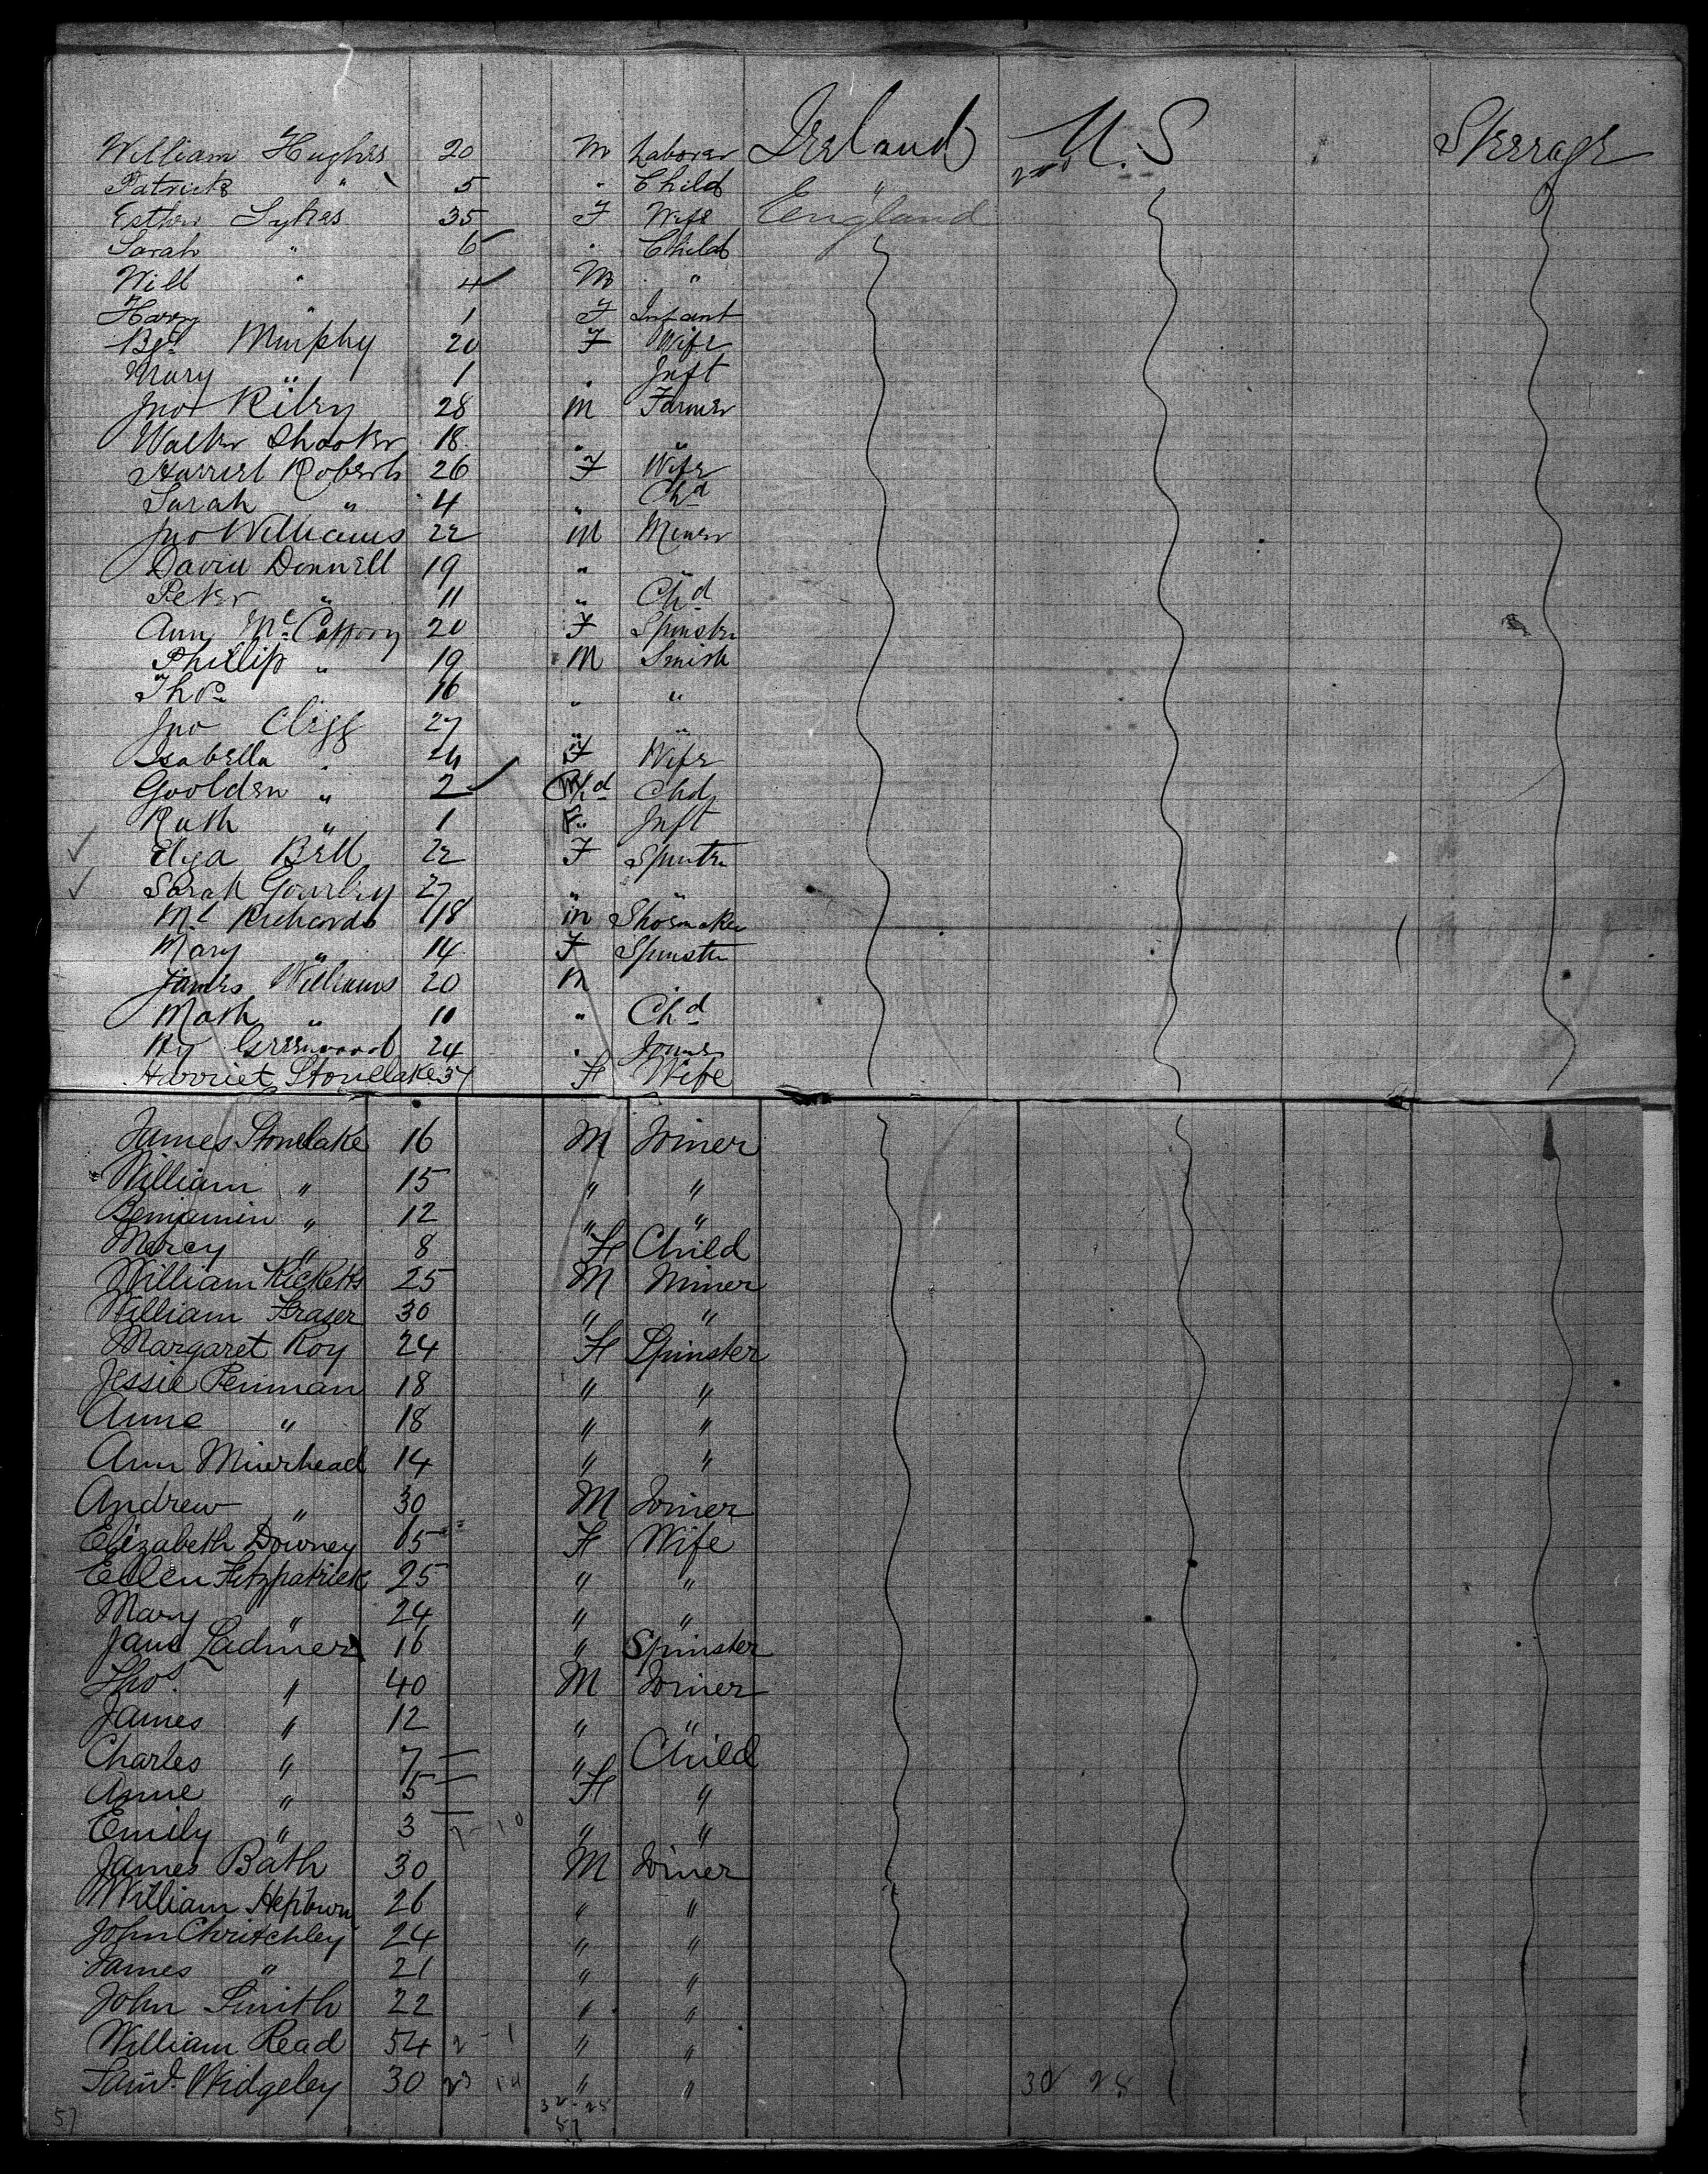 William Hughes 20 M Laborer Ireland U.S Steerage
Patrick " 5 " Child "
Esther Sykes 35 F Wife England
Sarah " 6 " Child
Will " 4 M "
Harry " 1 F Infant
Bgt Murphy 20 F Wife
Mary " 1 " Inft
Jno Riley 28 M Farmer
Walter Shooter 18 " "
Harriet Roberts 26 F Wife
Sarah " 4 " Chd
Jno Williams 22 M Miner
David Donnell 19 " "
Peter " 11 " Chd
Ann McCaffrey 20 F Spinster
Phillip " 19 M Smith
Thos 16 " "
Jno Clegg 27 " "
Isabella " 24 F Wife
Goolden " 2 Chd
Ruth " 1 F Inft
Elya Bell 22 F Spinster
Sarah Gourley 27 " "
Ml Richards 18 M Shoemaker
Mary " 14 F Spinster
James Williams 20 M
Math " 10 " Chd
Hy Greenwood 24 " Joiner
Harriet Stonelake 34 F Wife
James Stonelake 16 M Joiner
William " 15 " "
Benjamin " 12 " "
Mercy " 8 F Child
William Ricketts 25 M Miner
William Fraser 30 " "
Margaret Roy 24 F Spinster
Jessie Penman 18 " "
Anne " 18 " "
Ann Muirhead 14 " "
Andrew " 30 M Joiner
Elizabeth Downey 65 F Wife
Ellen Fitzpatrick 25 " "
Mary " 24 " "
Jane Ladner 16 " Spinster
Thos. " 40 M Joiner
James " 12 " "
Charles " 7 " Child
Anne " 5 F "
Emily " 3 " "
James Bath 30 M Joiner
William Hepburn 26 " "
John Chritchley 24 " "
James " 21 " "
John Smith 22 " "
William Read 54 2 - 1 " "
Saml. Widgeley 30 23 14 " " 32 28
57 32 - 25
57